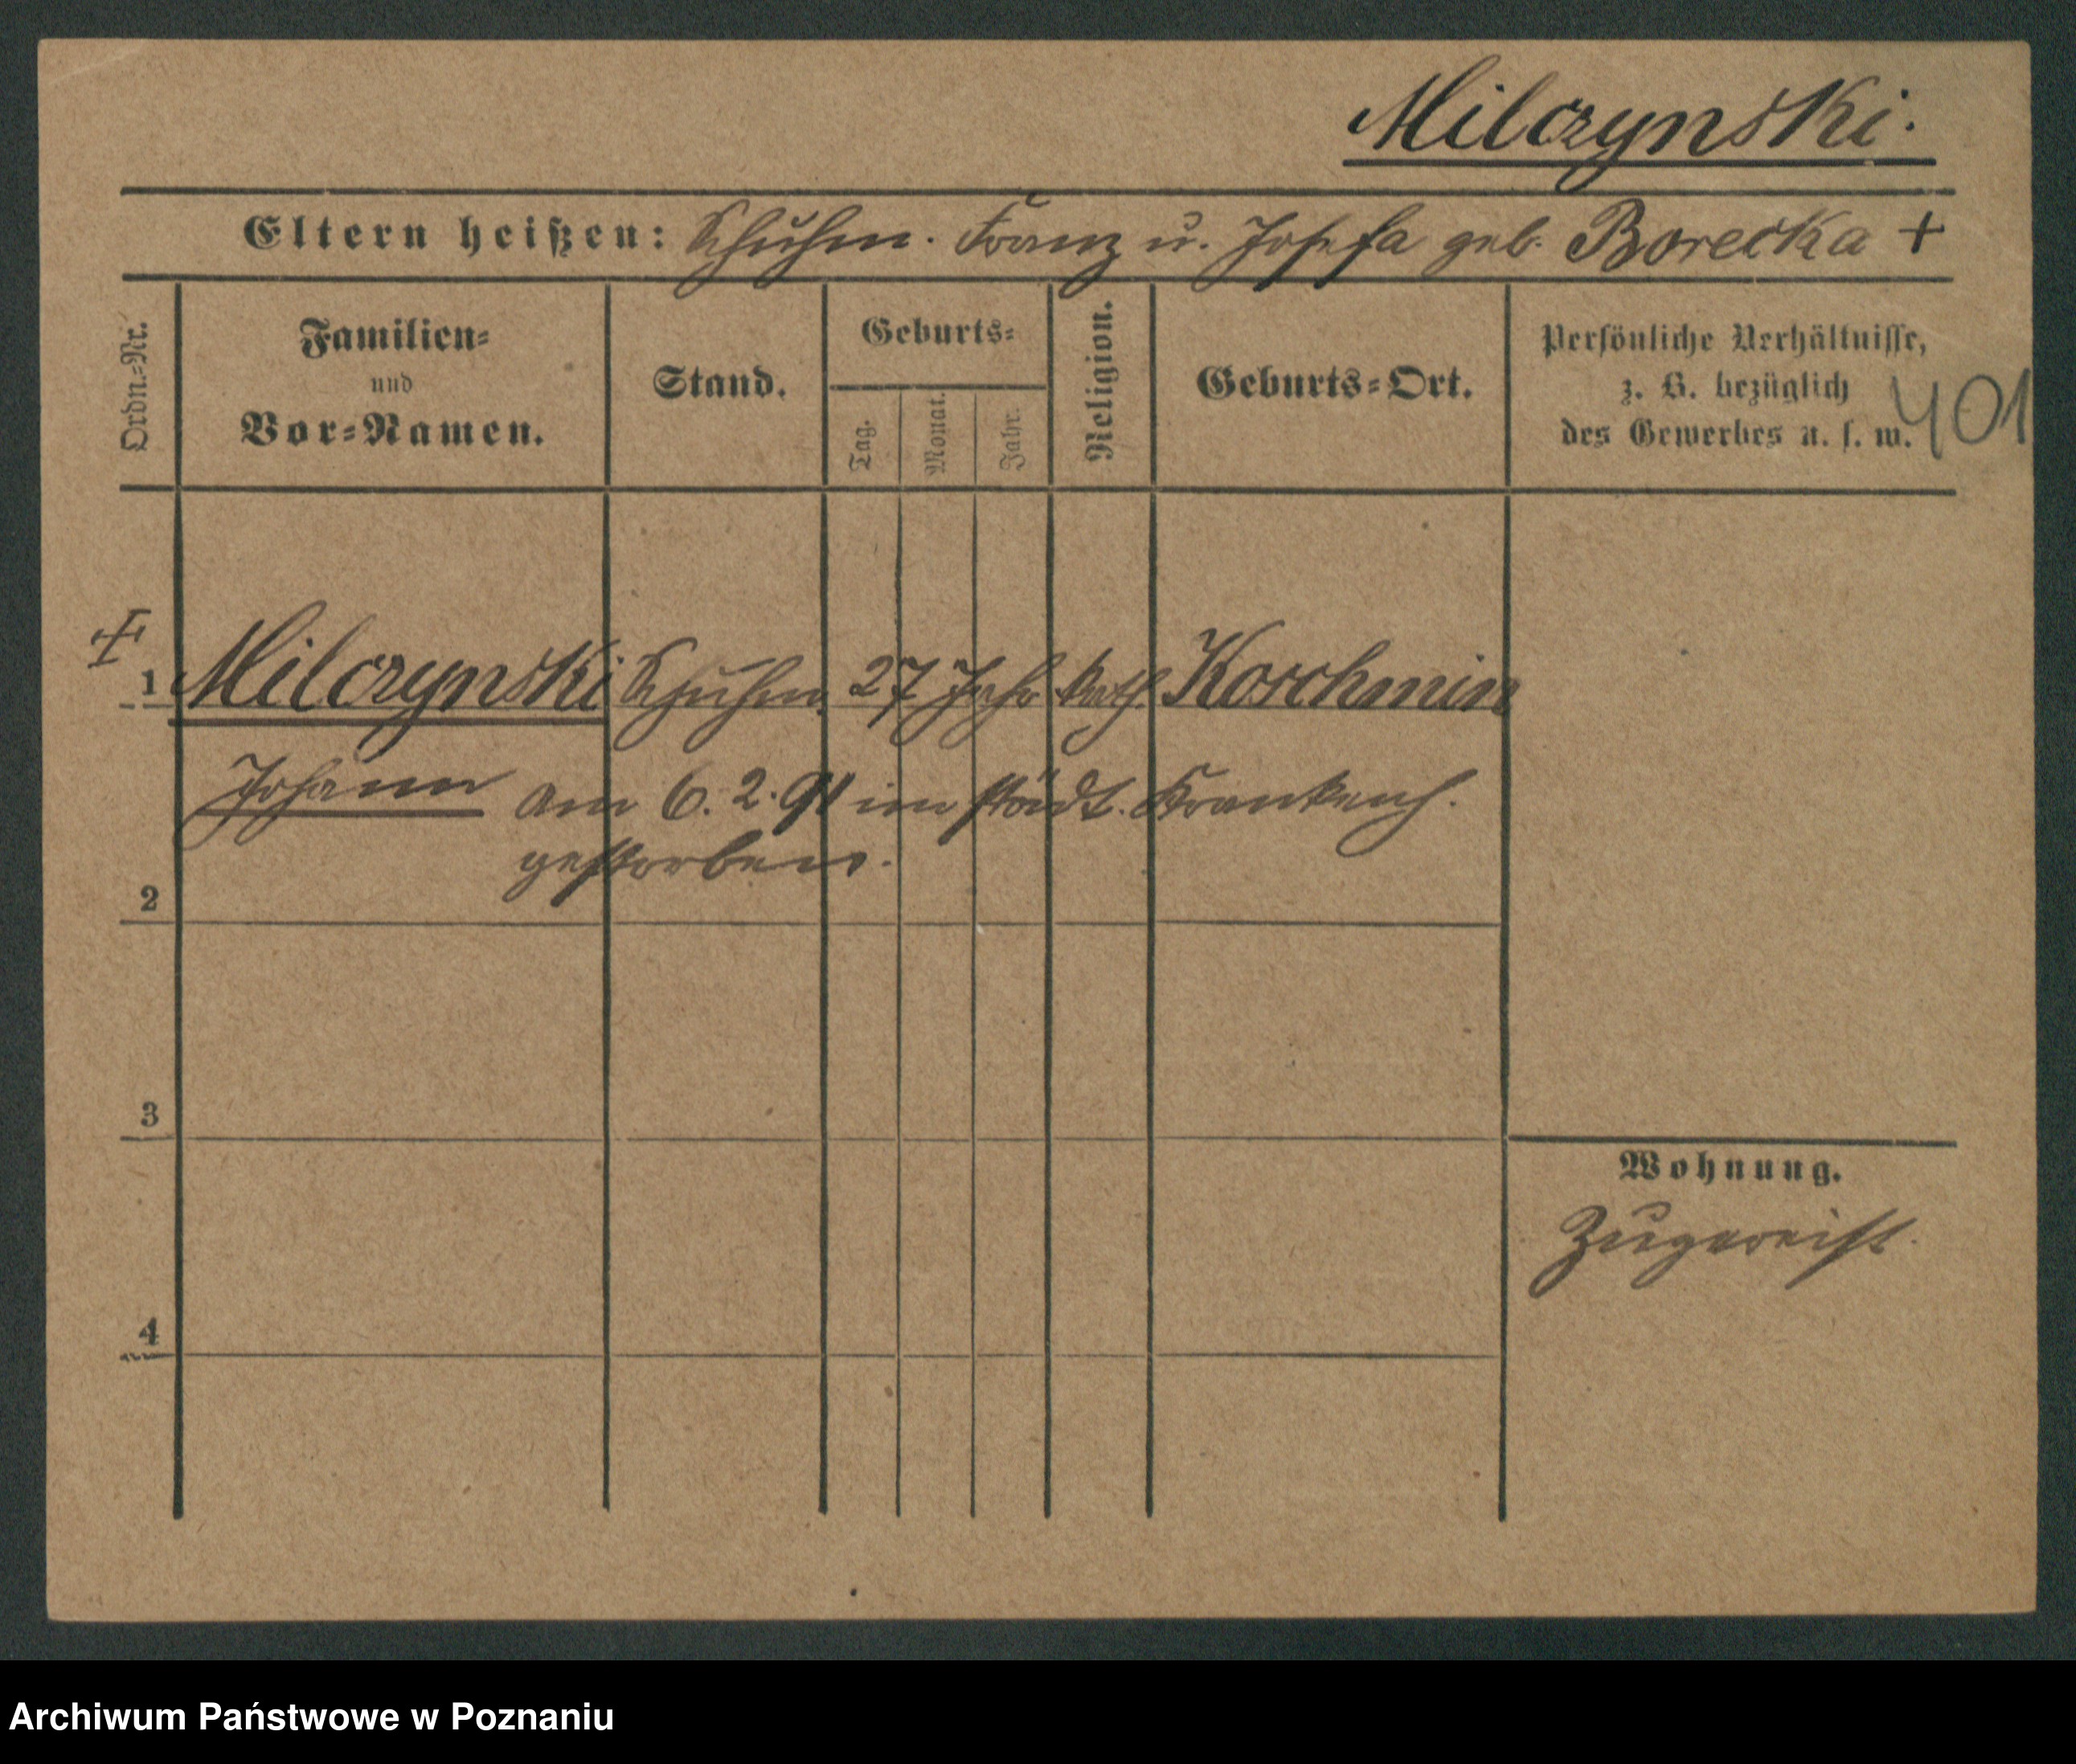 Milczynski.
Eltern heißen: Schuhm. Franz u. Josefa geb. Borecka +
Ordn.-Nr.
Familien-
und
Vor-Namen.
Stand.
Geburts-
Tag.
Monat.
Jahr.
Religion.
Geburts-Ort.
Persönliche Verhältnisse,
z. B. bezüglich
des Gewerbes u. s. w.
401
1 Milczynski Schuhm. 27 Jahr kath. Korchmin
Johann am 6. 2. 91 im städt. Krankenh.
gestorben.
2
3
Wohnung.
Zugereist.
4
Archiwum Państwowe w Poznaniu